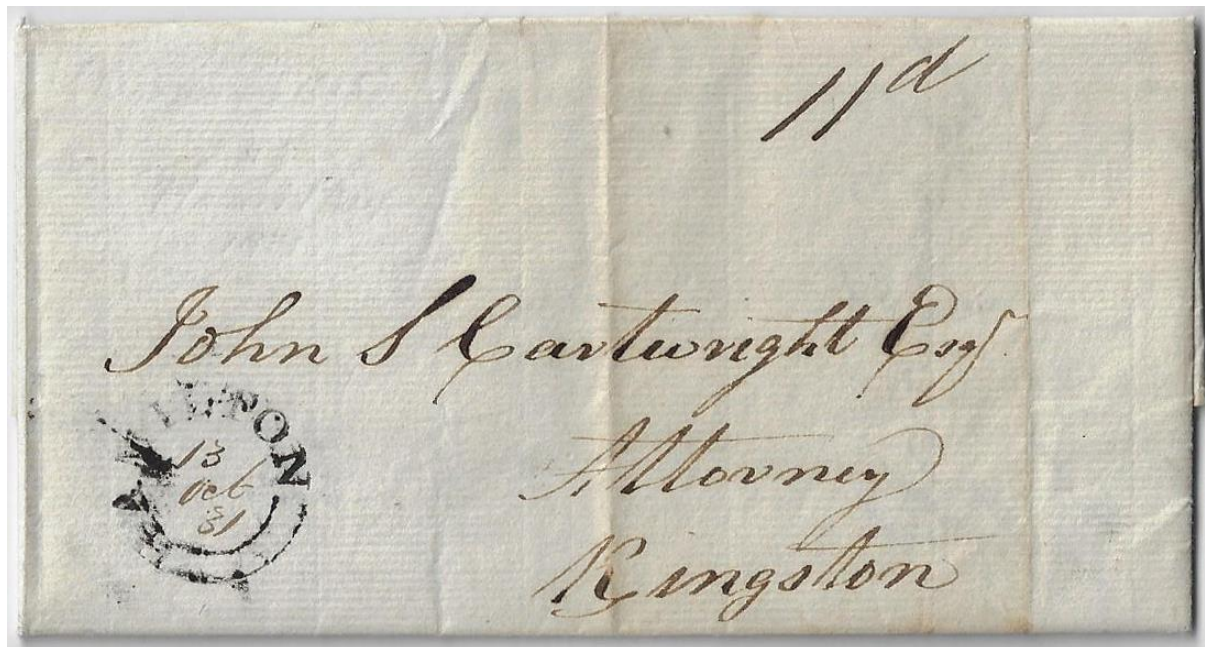 11d
John S Cartwright Esqr
Attorney
Kingston
HAMILTON
13
Oct
31